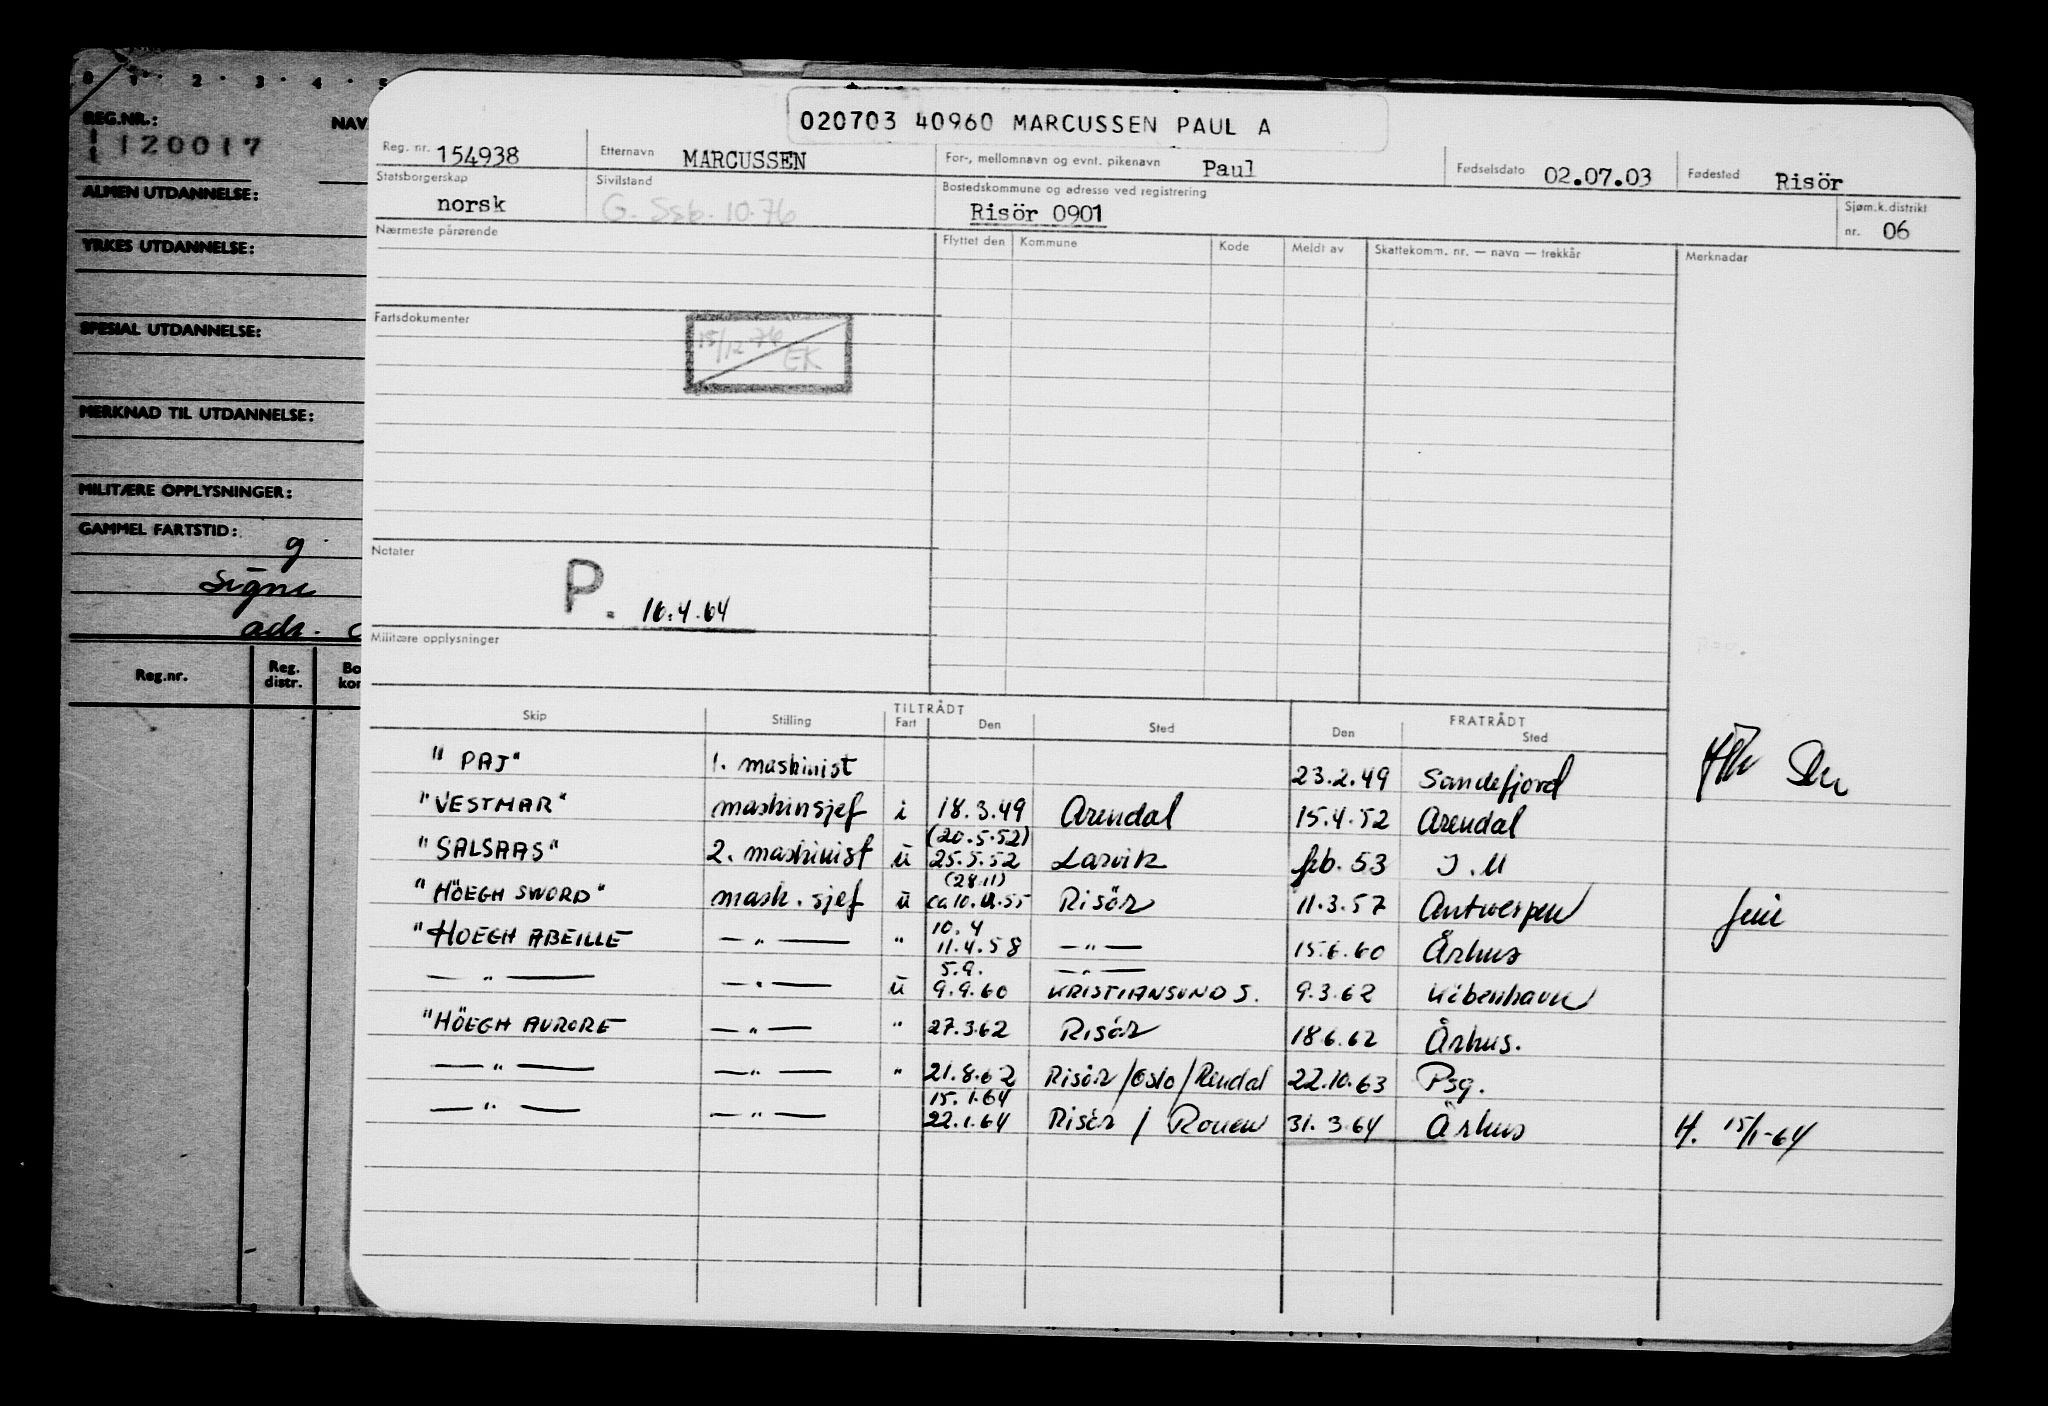 0 1 2 3 4 5
REG.NR.: NAV
120017
ALMEN UTDANNELSE:
YRKES UTDANNELSE:
SPESIAL UTDANNELSE:
MERKNAD TIL UTDANNELSE:
MILITÆRE OPPLYSNINGER:
GAMMEL FARTSTID:
g
Signe
adr.
Reg.nr. Reg. distr. Bo kor
020703 40960 MARCUSSEN PAUL A
Reg. nr. 154938 Etternavn MARCUSSEN For-, mellomnavn og evnt. pikenavn Paul Fødselsdato 02.07.03 Fødested Risör
Statsborgerskap norsk Sivilstand G. Ssb. 10.76 Bostedskommune og adresse ved registrering Risör 0901 Sjøm.k.distrikt nr. 06
Nærmeste pårørende Flyttet den Kommune Kode Meldt av Skattekomm. nr. — navn — trekkår Merknadar
Fartsdokumenter
15/12 76 EK
Notater
P. 16.4.64
Militære opplysninger
TILTRÅDT FRATRÅDT
Skip Stilling Fart Den Sted Den Sted
"PAJ" 1. maskinist 23.2.49 Sandefjord
"VESTMAR" maskinsjef i 18.3.49 Arendal 15.4.52 Arendal
(20.5.52)
"SALSAAS" 2. maskinist u 25.5.52 Larvik feb. 53 I.M
(28.11)
"HÖEGH SWORD" mask. sjef u ca 10.11.55 Risör 11.3.57 Antwerpen
10.4
"HOEGH ABEILLE — " — " 11.4.58 — " — 15.6.60 Århus
5.9. — " —
— " — — " — u 9.9.60 KRISTIANSUND S. 9.3.62 Köbenhavn
"HÖEGH AURORE — " — " 27.3.62 Risör 18.6.62 Århus.
— " — — " — " 21.8.62 Risör/Oslo/Rendal 22.10.63 Psg.
15.1.64
— " — — " — 22.1.64 Risör / Rouen 31.3.64 Århus H. 15/1-64